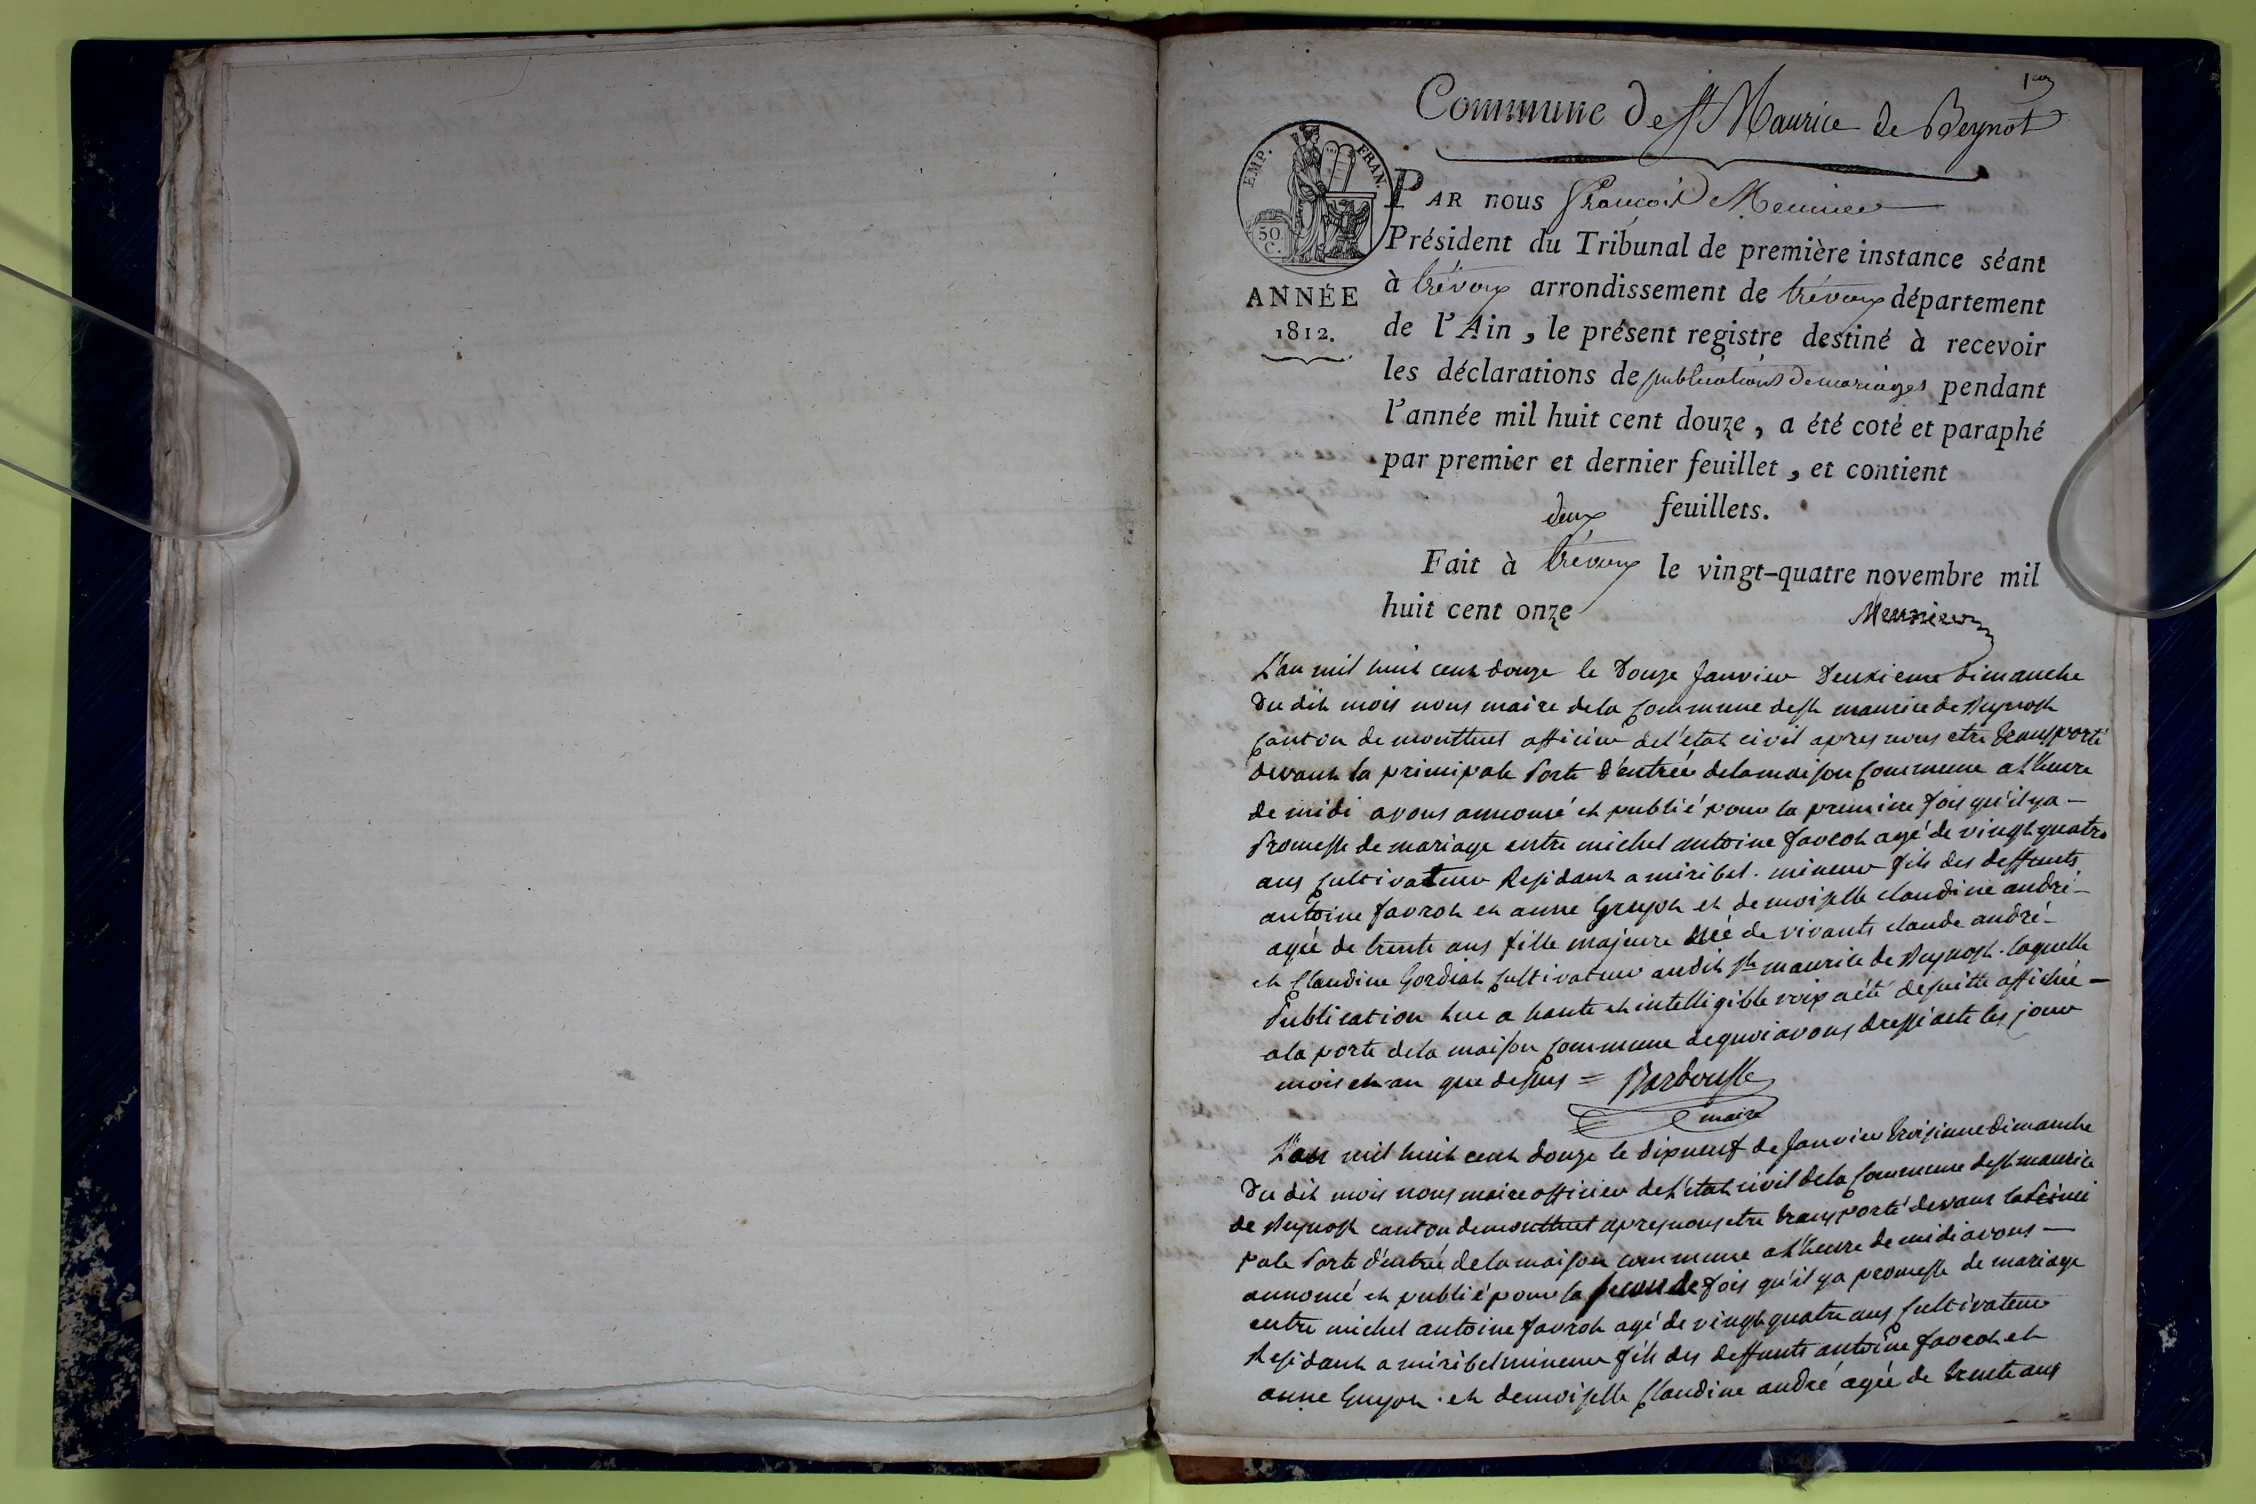 1er
Commune de St Maurice de Beynost
EMP. FRAN.
50
C.
ANNÉE
1812.
PAR nous François Meunier
Président du Tribunal de première instance séant
à trévoux arrondissement de trévoux département
de l'Ain, le présent registre destiné à recevoir
les déclarations de publications de mariages pendant
l'année mil huit cent douze, a été coté et paraphé
par premier et dernier feuillet, et contient
deux feuillets.
Fait à trévoux le vingt-quatre novembre mil
huit cent onze
Meunier
L'an mil huit cent douze le Douze Janvier Deuxieme dimanche
Du dit mois nous maire de la Commune de st maurice de Beynost
Canton de montluel officier de l'etat civil apres nous etre transporté
devant la principale Porte d'entrée de la maison Commune a l'heure
de midi avons annoncé et publié pour la premiere fois qu'il ya
Promesse de mariage entre michel antoine favrot agé de vingt quatre
ans Cultivateur Residant a miribel mineur fils des deffunts
antoine favrot et anne Guyot et demoiselle claudine andré
agée de trente ans fille majeure née de vivants claude andré
et Claudine Gordiat Cultivateur au dit st maurice de Beynost. laquelle
Publication lue a haute et intelligible voix a été de suitte affichée
a la porte de la maison Commune de quoi avons dressé acte les jour
mois et an que dessus = Bardousse
maire
L'an mil huit cent douze le dixneuf de Janvier troisieme dimanche
Du dit mois nous maire officier de l'état civil de la Commune de st maurice
de Beynost canton de montluel apres nous etre transporté devant la Princi
pale Porte d'entrée de la maison commune a l'heure de midi avons
annoncé et publié pour la seconde fois qu'il ya promesse de mariage
entre michel antoine favrot agé de vingt quatre ans Cultivateur
Residant a miribel mineur fils des deffunts antoine favrot et
anne Guyot. et demoiselle Claudine andré agée de trente ans